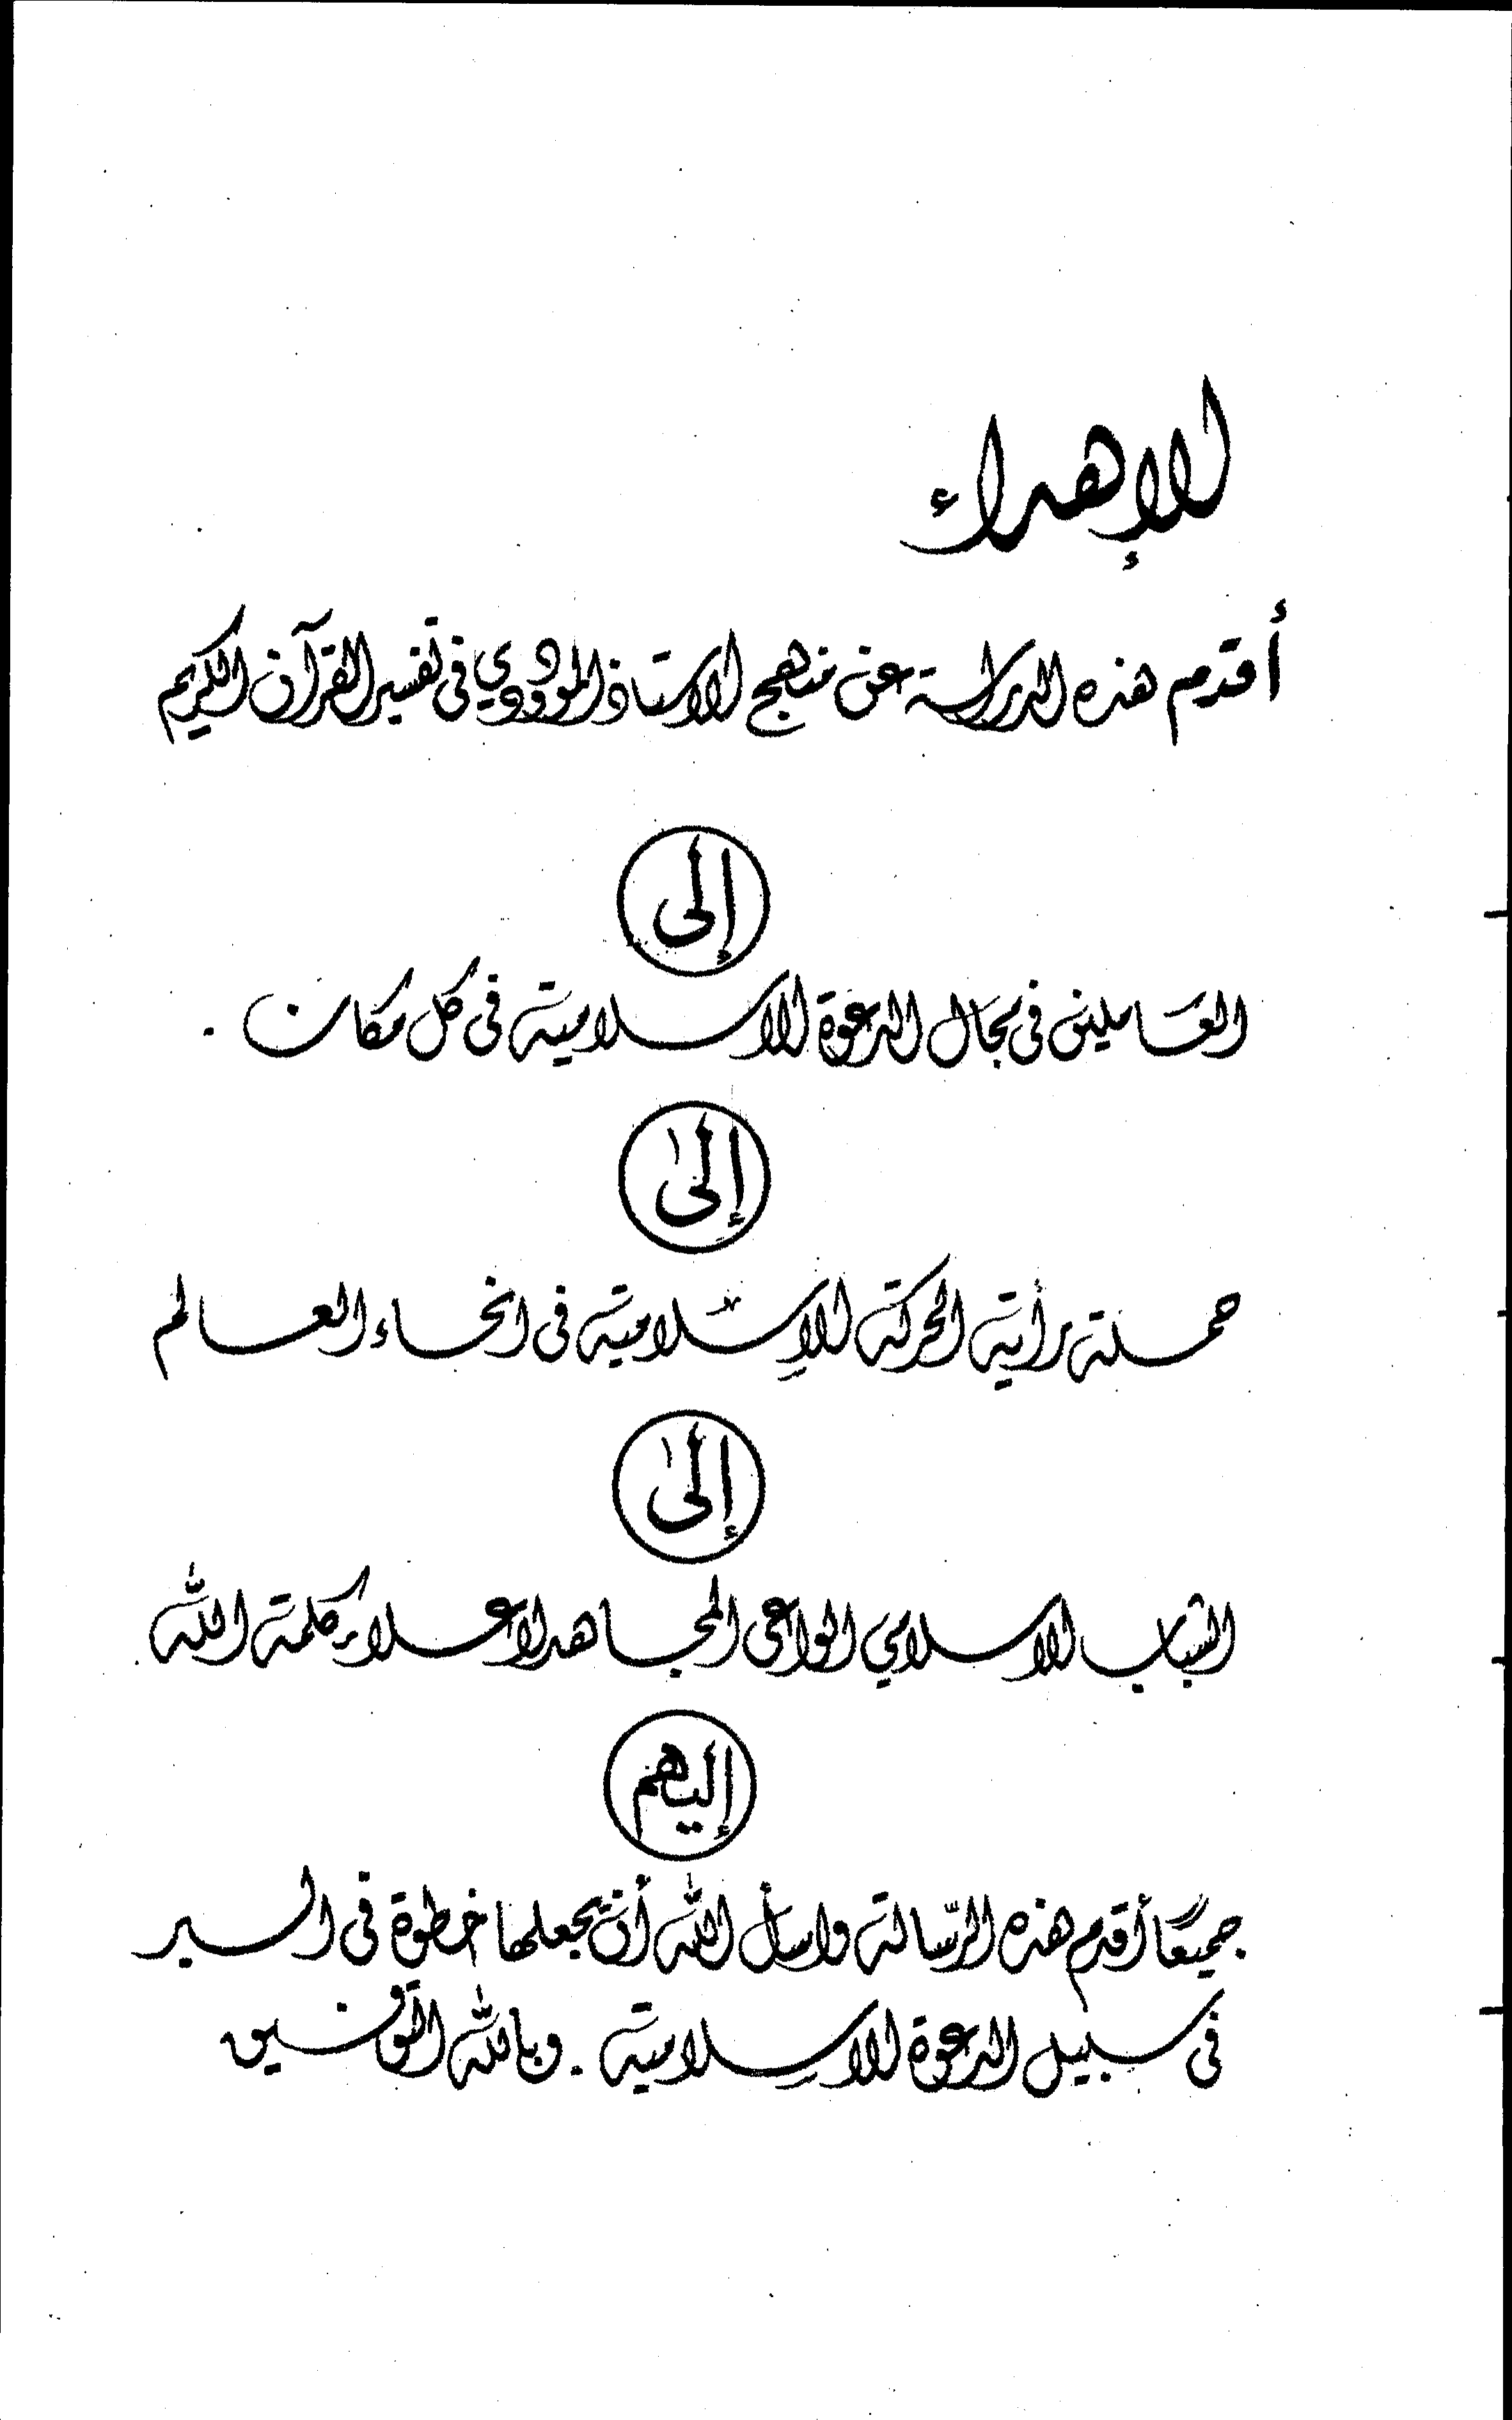 الإهداء
أقدم هذه الدراسة عن منهج الاستاذ المودودي فى تفسير القرآن الكريم
إلى
العاملين فى مجال الدعوة الاسلامية فى كل مكان .
إلى
حملة رأية الحركة الإسلامية فى انحاء العالم
إلى
الشباب الاسلامي الواعى المجاهد لاعلاء كلمة الله .
إليهم
جميعًا أقدم هذه الرّسالة واسأل الله أن يجعلها خطوة فى السير
فى سبيل الدعوة الاسلامية . وبالله التوفيق